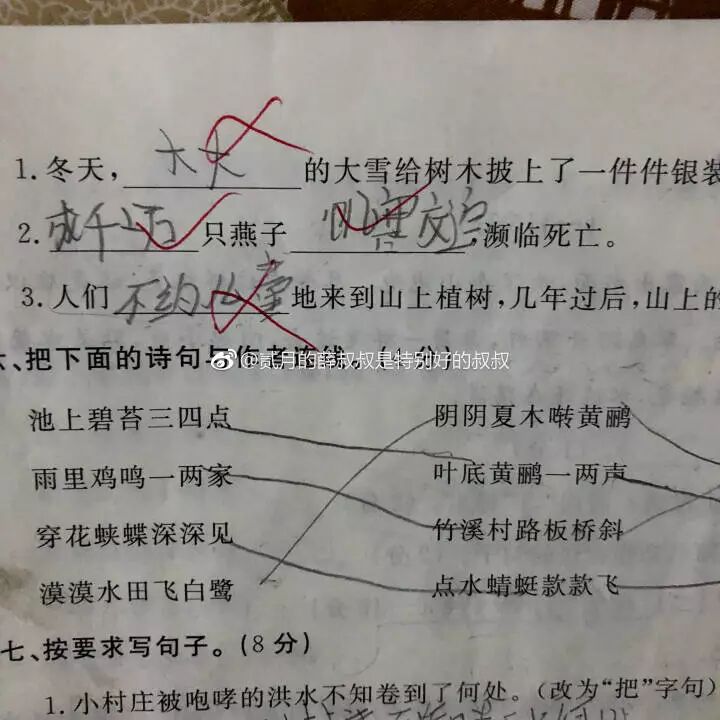 1.冬天，大大的大雪给树木披上了一件件银装
2.成千上万只燕子饥寒交迫，濒临死亡。
3.人们不约而地来到山上植树，几年过后，山上的
六、把下面的诗句与作者连线。（4分）
@贰月的薛叔叔是特别好的叔叔
池上碧苔三四点 阴阴夏木啭黄鹂
雨里鸡鸣一两家 叶底黄鹂一两声
穿花蛱蝶深深见 竹溪村路板桥斜
漠漠水田飞白鹭 点水蜻蜓款款飞
七、按要求写句子。（8分）
1.小村庄被咆哮的洪水不知卷到了何处。（改为“把”字句）